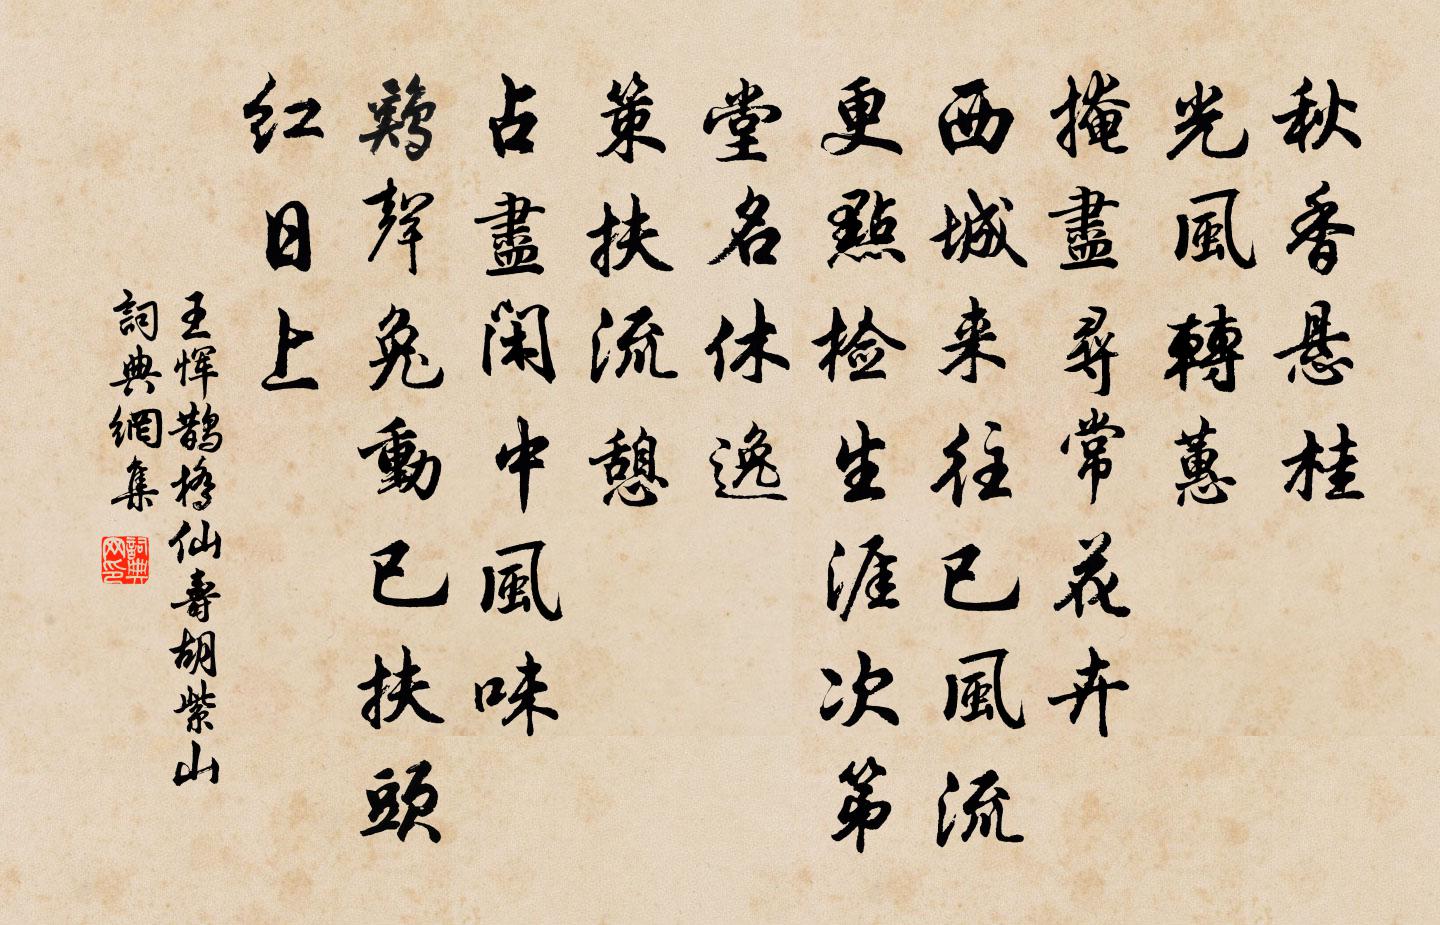 秋香悬桂
光風轉蕙
掩盡尋常花卉
西城来往已風流
更點检生涯次第
堂名休逸
策扶流憩
占盡闲中風味
鷄聲兔動已扶頭
红日上
王恽鹊橋仙壽胡紫山
詞典網集
詞典网印